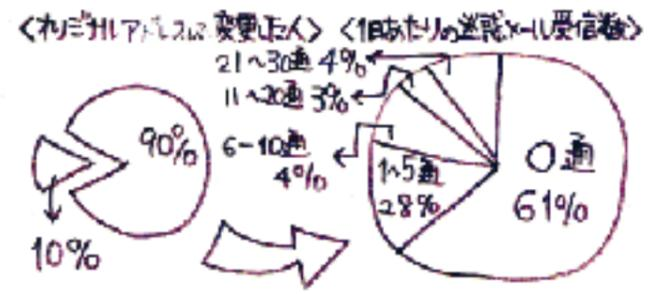 <オリジナルアドレスに変更した人>
<1日あたりの迷惑メール受信数>
90%
10%
21~30通 4%
11~20通 3%
6-10通
4%
1~5通
28%
0通
61%